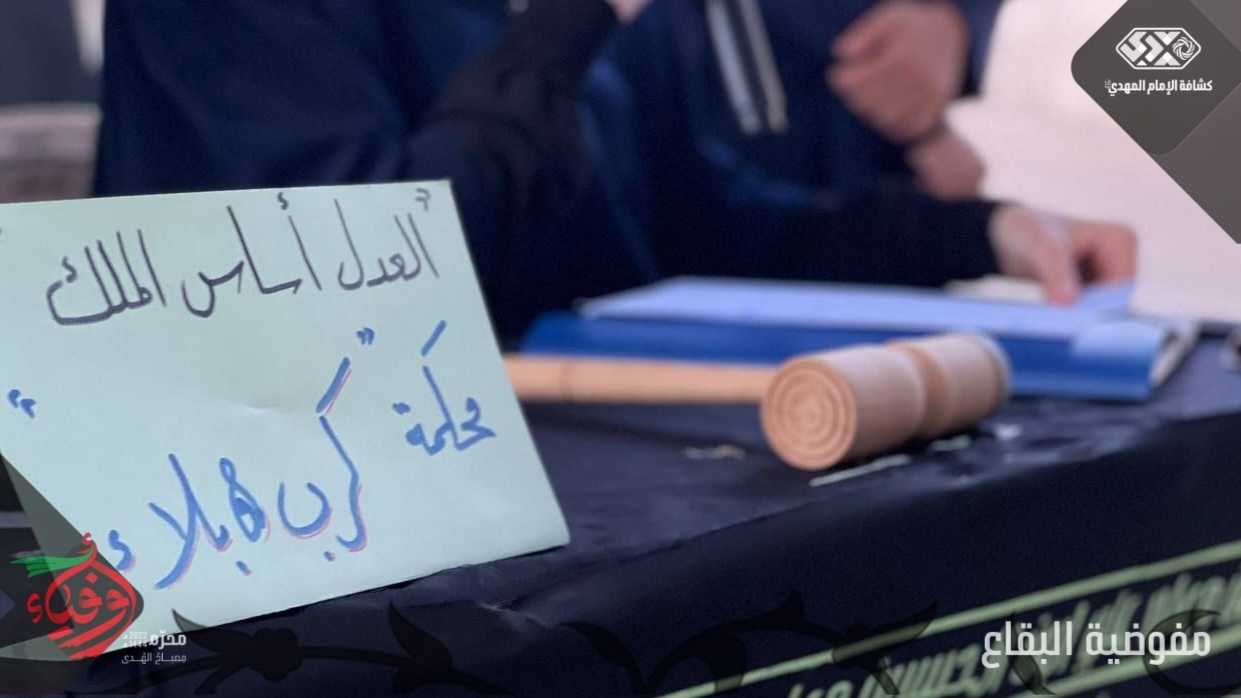 كشافة الإمام المهدي
"العدل أساس الملك"
محكمة
"كرب & بلاء"
أوفياء
محرّم
مصباحُ الهُدى
مفوضية البقاع